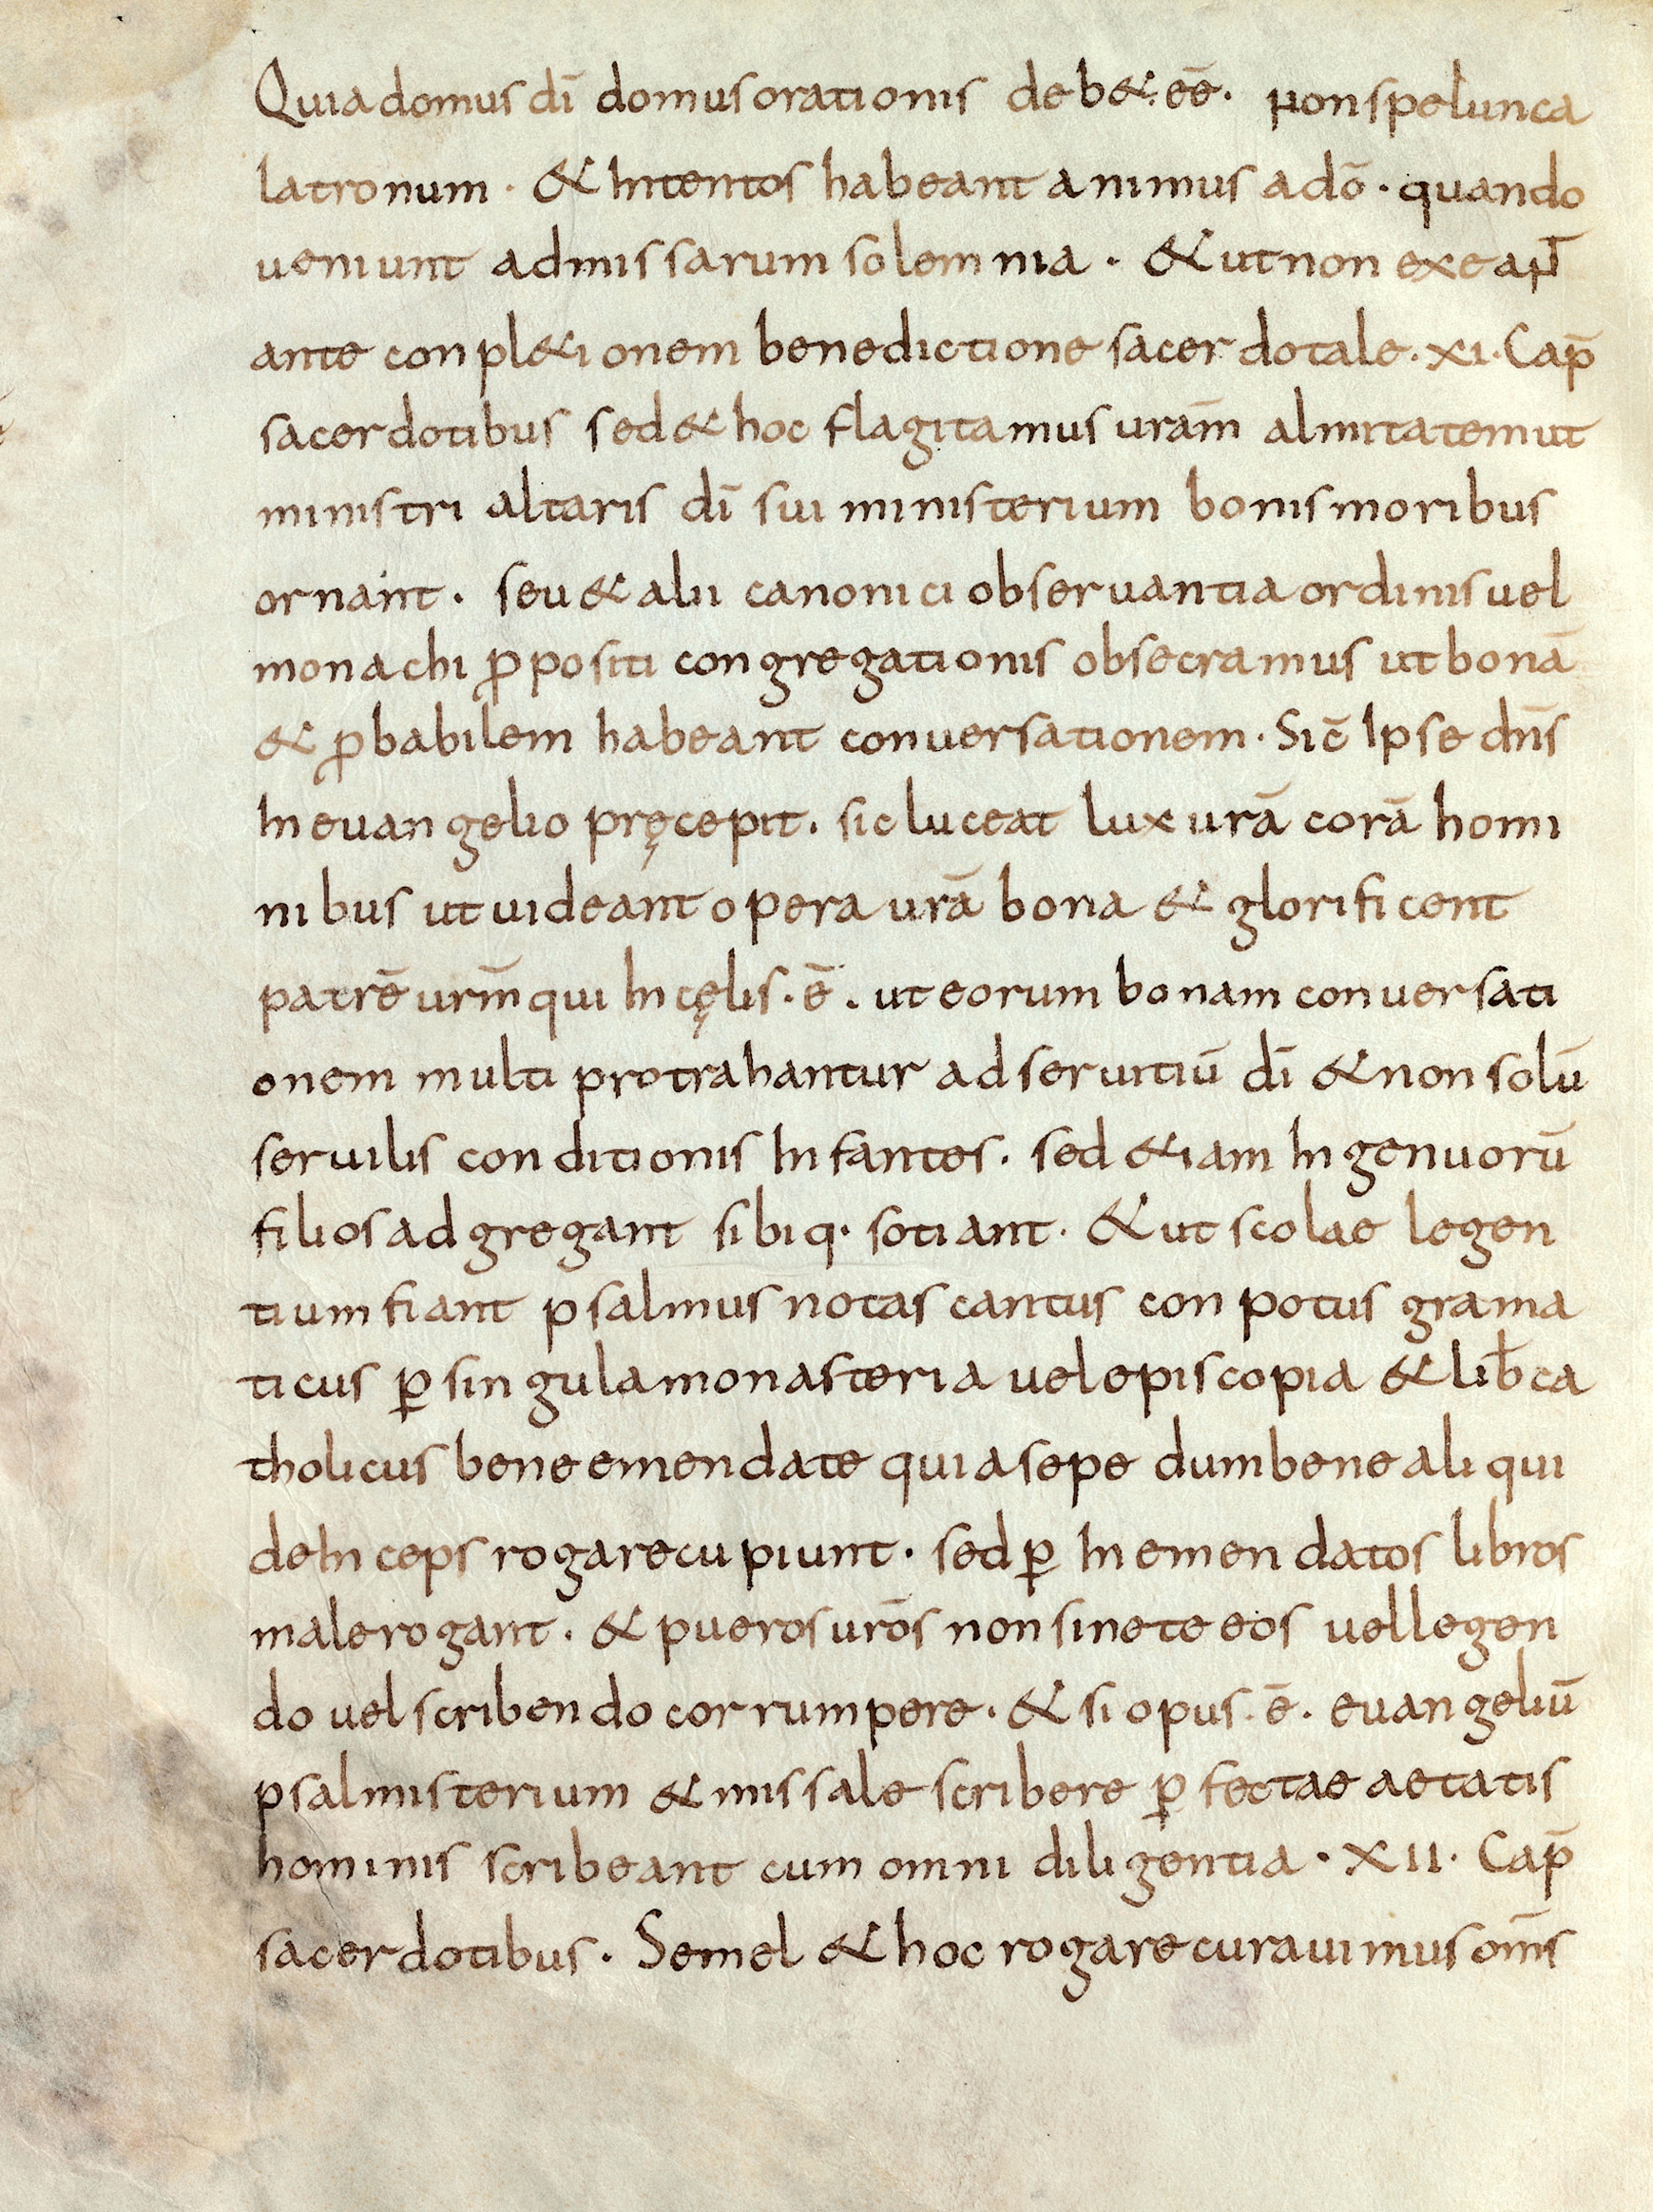 Quia domus dī domus orationis deb&. eē. non spelunca
latronum. & Intentos habeant animus ad dō. quando
ueniunt ad missarum solemnia. & ut non exeaNT
ante conpl&ionem benedictione sacerdotale. xi. Cap̄
sacerdotibus sed & hoc flagitamus urām almitatem ut
ministri altaris dī sui ministerium bonis moribus
ornaint. seu & alii canonici obseruantia ordinis uel
monachi ꝓpositi congregationis obsecramus ut bonā
& ꝓbabilem habeant conuersationem. Sic̄ Ipse dn̄s
In euangelio pręcepit. sic luceat lux urā corā homi
nibus ut uideant opera urā bona & glorificent
patrē urm̄ qui In cęlis. ē. ut eorum bonam conuersati
onem multi protrahantur ad seruitiū dī & non solū
seruilis conditionis Infantes. sed &iam Ingenuorū
filios adgregant sibiq. sotiant. & ut scolae legen
tium fiant psalmus notas cantus conpotus grama
ticus ꝑ singula monasteria uel episcopia & lib̄ ca
tholicus bene emendate quia sepe dum bene aliqui
deInceps rogare cupiunt. sed ꝑ Inemendatos libros
male rogant. & pueros urōs non sinete eos uel legen
do uel scribendo corrumpere. & si opus. ē. euangeliū
psalmisterium & missale scribere ꝑfectae aetatis
hominis scribeant cum omni diligentia. XII. Cap̄
sacerdotibus. Semel & hoc rogare curauimus om̄s